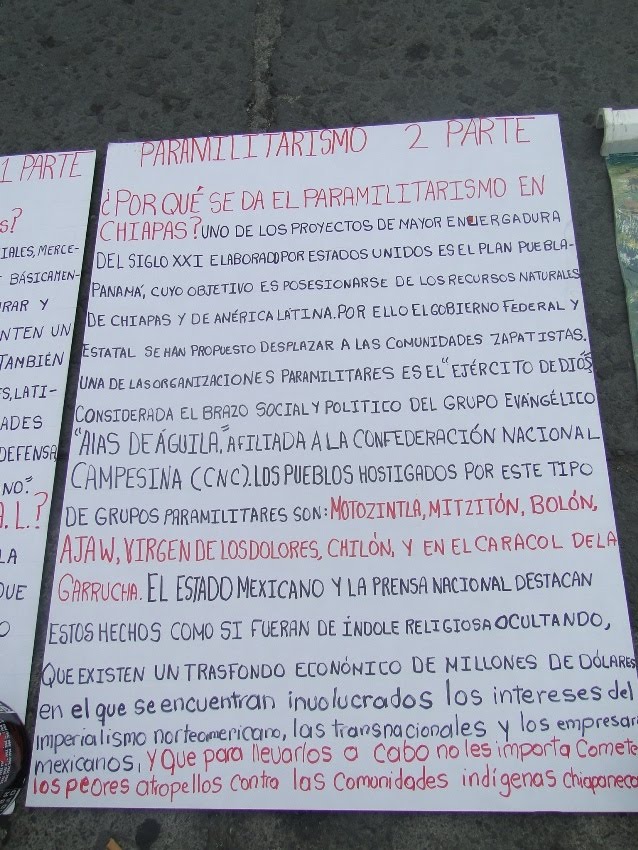 1 PARTE
S?
IALES, MERCE-
E BÁSICAMEN-
RAR Y
NTEN UN
TAMBIÉN
ES, LATI-
DADES
DEFENSA
NO".
A.L.?
LA
QUE
O
PARAMILITARISMO 2 PARTE
¿POR QUÉ SE DA EL PARAMILITARISMO EN
CHIAPAS? UNO DE LOS PROYECTOS DE MAYOR ENVERGADURA
DEL SIGLO XXI ELABORADO POR ESTADOS UNIDOS ES EL PLAN PUEBLA-
PANAMÁ, CUYO OBJETIVO ES POSESIONARSE DE LOS RECURSOS NATURALES
DE CHIAPAS Y DE AMÉRICA LATINA. POR ELLO EL GOBIERNO FEDERAL Y
ESTATAL SE HAN PROPUESTO DESPLAZAR A LAS COMUNIDADES ZAPATISTAS.
UNA DE LAS ORGANIZACIONES PARAMILITARES ES EL "EJÉRCITO DE DIOS"
CONSIDERADA EL BRAZO SOCIAL Y POLITICO DEL GRUPO EVANGÉLICO
"AlAS DE ÁGUILA," AFILIADA A LA CONFEDERACIÓN NACIONAL
CAMPESINA (CNC). LOS PUEBLOS HOSTIGADOS POR ESTE TIPO
DE GRUPOS PARAMILITARES SON: MOTOZINTLA, MITZITÓN, BOLÓN,
AJAW, VIRGEN DE LOS DOLORES, CHILÓN, Y EN EL CARACOL DE LA
GARRUCHA. EL ESTADO MEXICANO Y LA PRENSA NACIONAL DESTACAN
ESTOS HECHOS COMO SI FUERAN DE ÍNDOLE RELIGIOSA OCULTANDO,
QUE EXISTEN UN TRASFONDO ECONÓMICO DE MILLONES DE DÓLARES
en el que se encuentran involucrados los intereses del
imperialismo norteamericano, las transnacionales y los empresar
mexicanos, y que para llevarlos a cabo no les importa Comete
los peores atropellos contra las Comunidades indígenas chiapaneca